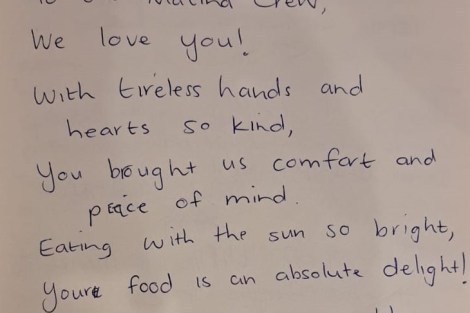 Crew,
We love you!
With tireless hands and
hearts so kind,
You brought us comfort and
peace of mind.
Eating with the sun so bright,
Youre food is an absolute delight!